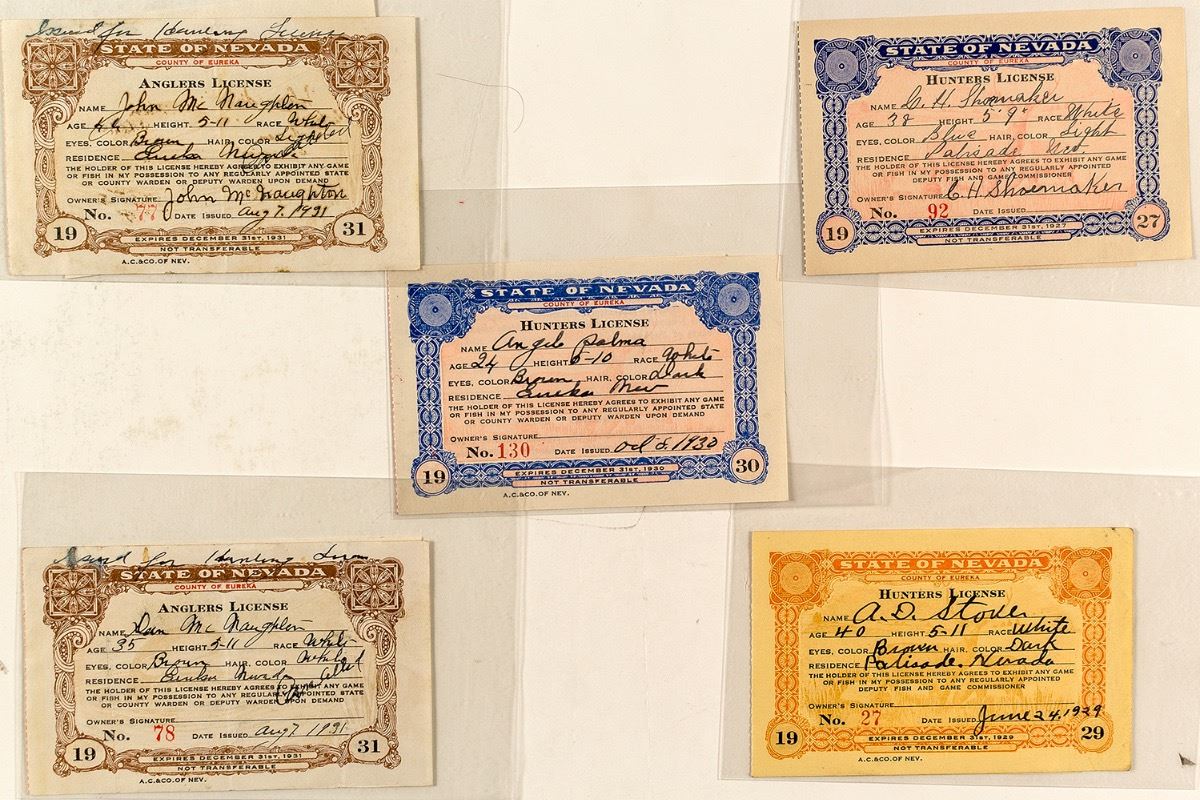 Issued for Hunting License
STATE OF NEVADA
COUNTY OF EUREKA
ANGLERS LICENSE
NAME John McNaughton
AGE HEIGHT 5-11 RACE White
EYES, COLOR Brown HAIR, COLOR
RESIDENCE Eureka Nevada
THE HOLDER OF THIS LICENSE HEREBY AGREES TO EXHIBIT ANY GAME
OR FISH IN MY POSSESSION TO ANY REGULARLY APPOINTED STATE
OR COUNTY WARDEN OR DEPUTY WARDEN UPON DEMAND
OWNER'S SIGNATURE John McNaughton
No. 77 DATE ISSUED Aug 7. 1931
19 31
EXPIRES DECEMBER 31ST, 1931
NOT TRANSFERABLE
A.C.&CO. OF NEV.
STATE OF NEVADA
COUNTY OF EUREKA
HUNTERS LICENSE
NAME C. H. Shoemaker
AGE 38 HEIGHT 5-9" RACE White
EYES, COLOR Blue HAIR, COLOR Light
RESIDENCE Palisade Nev.
THE HOLDER OF THIS LICENSE HEREBY AGREES TO EXHIBIT ANY GAME
OR FISH IN MY POSSESSION TO ANY REGULARLY APPOINTED
DEPUTY FISH AND GAME COMMISSIONER
OWNER'S SIGNATURE C. H. Shoemaker
No. 92 DATE ISSUED
19 27
EXPIRES DECEMBER 31ST, 1927
NOT TRANSFERABLE
STATE OF NEVADA
COUNTY OF EUREKA
HUNTERS LICENSE
NAME Angelo Palma
AGE 24 HEIGHT 5-10 RACE White
EYES, COLOR Brown HAIR, COLOR Dark
RESIDENCE Eureka Nev
THE HOLDER OF THIS LICENSE HEREBY AGREES TO EXHIBIT ANY GAME
OR FISH IN MY POSSESSION TO ANY REGULARLY APPOINTED STATE
OR COUNTY WARDEN OR DEPUTY WARDEN UPON DEMAND
OWNER'S SIGNATURE
No. 130 DATE ISSUED Oct 5. 1930
19 30
EXPIRES DECEMBER 31ST, 1930
NOT TRANSFERABLE
A.C.&CO. OF NEV.
Issued for Hunting
STATE OF NEVADA
COUNTY OF EUREKA
ANGLERS LICENSE
NAME Dan McNaughton
AGE 35 HEIGHT 5-11 RACE White
EYES, COLOR Brown HAIR, COLOR White
RESIDENCE Eureka Nevada
THE HOLDER OF THIS LICENSE HEREBY AGREES TO EXHIBIT ANY GAME
OR FISH IN MY POSSESSION TO ANY REGULARLY APPOINTED STATE
OR COUNTY WARDEN OR DEPUTY WARDEN UPON DEMAND
OWNER'S SIGNATURE
No. 78 DATE ISSUED Aug 7. 1931
19 31
EXPIRES DECEMBER 31ST, 1931
NOT TRANSFERABLE
A.C.&CO. OF NEV.
STATE OF NEVADA
COUNTY OF EUREKA
HUNTERS LICENSE
NAME A. D. Stover
AGE 40 HEIGHT 5-11 RACE White
EYES, COLOR Brown HAIR, COLOR Dark
RESIDENCE Palisade. Nevada
THE HOLDER OF THIS LICENSE HEREBY AGREES TO EXHIBIT ANY GAME
OR FISH IN MY POSSESSION TO ANY REGULARLY APPOINTED
DEPUTY FISH AND GAME COMMISSIONER
OWNER'S SIGNATURE
No. 27 DATE ISSUED June 24, 1929
19 29
EXPIRES DECEMBER 31ST, 1929
NOT TRANSFERABLE
A.C.&CO. OF NEV.